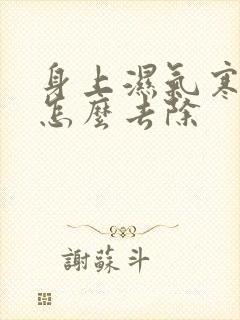 身上濕氣寒
怎麼去除
謝蘇斗